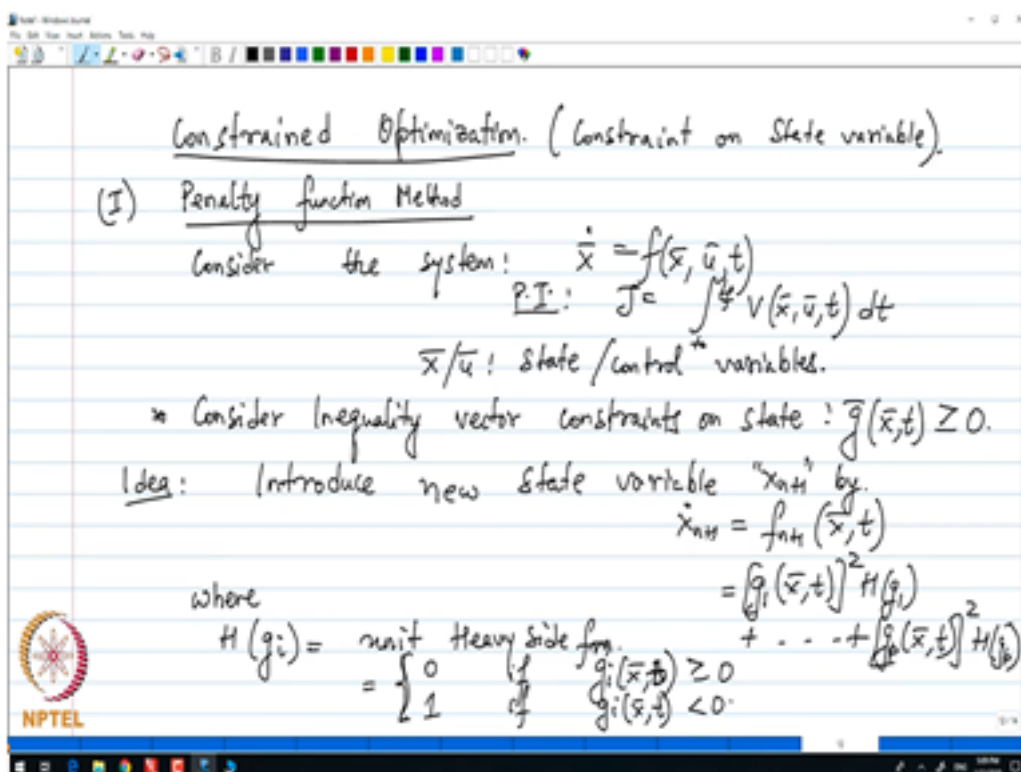 File Edit View Insert Actions Tools Help
Constrained Optimization. (Constraint on State variable).
(I) Penalty function Method
Consider the system: ẋ̄ = f(x̄, ū, t)
P.I.: J = ∫_{t₀}^{t_f} V(x̄, ū, t) dt
x̄/ū: State/Control variables.
* Consider Inequality vector constraints on state: ḡ(x̄,t) ≥ 0.
Idea: Introduce new state variable "x_{n+1}" by.
ẋ_{n+1} = f_{n+1}(x̄,t)
= [g₁(x̄,t)]² H(g₁)
+ . . . . + [g_p(x̄,t)]² H(g_p)
where
H(gᵢ) = unit Heavyside fxn.
= { 0 if gᵢ(x̄,t) ≥ 0
1 if gᵢ(x̄,t) < 0.
NPTEL